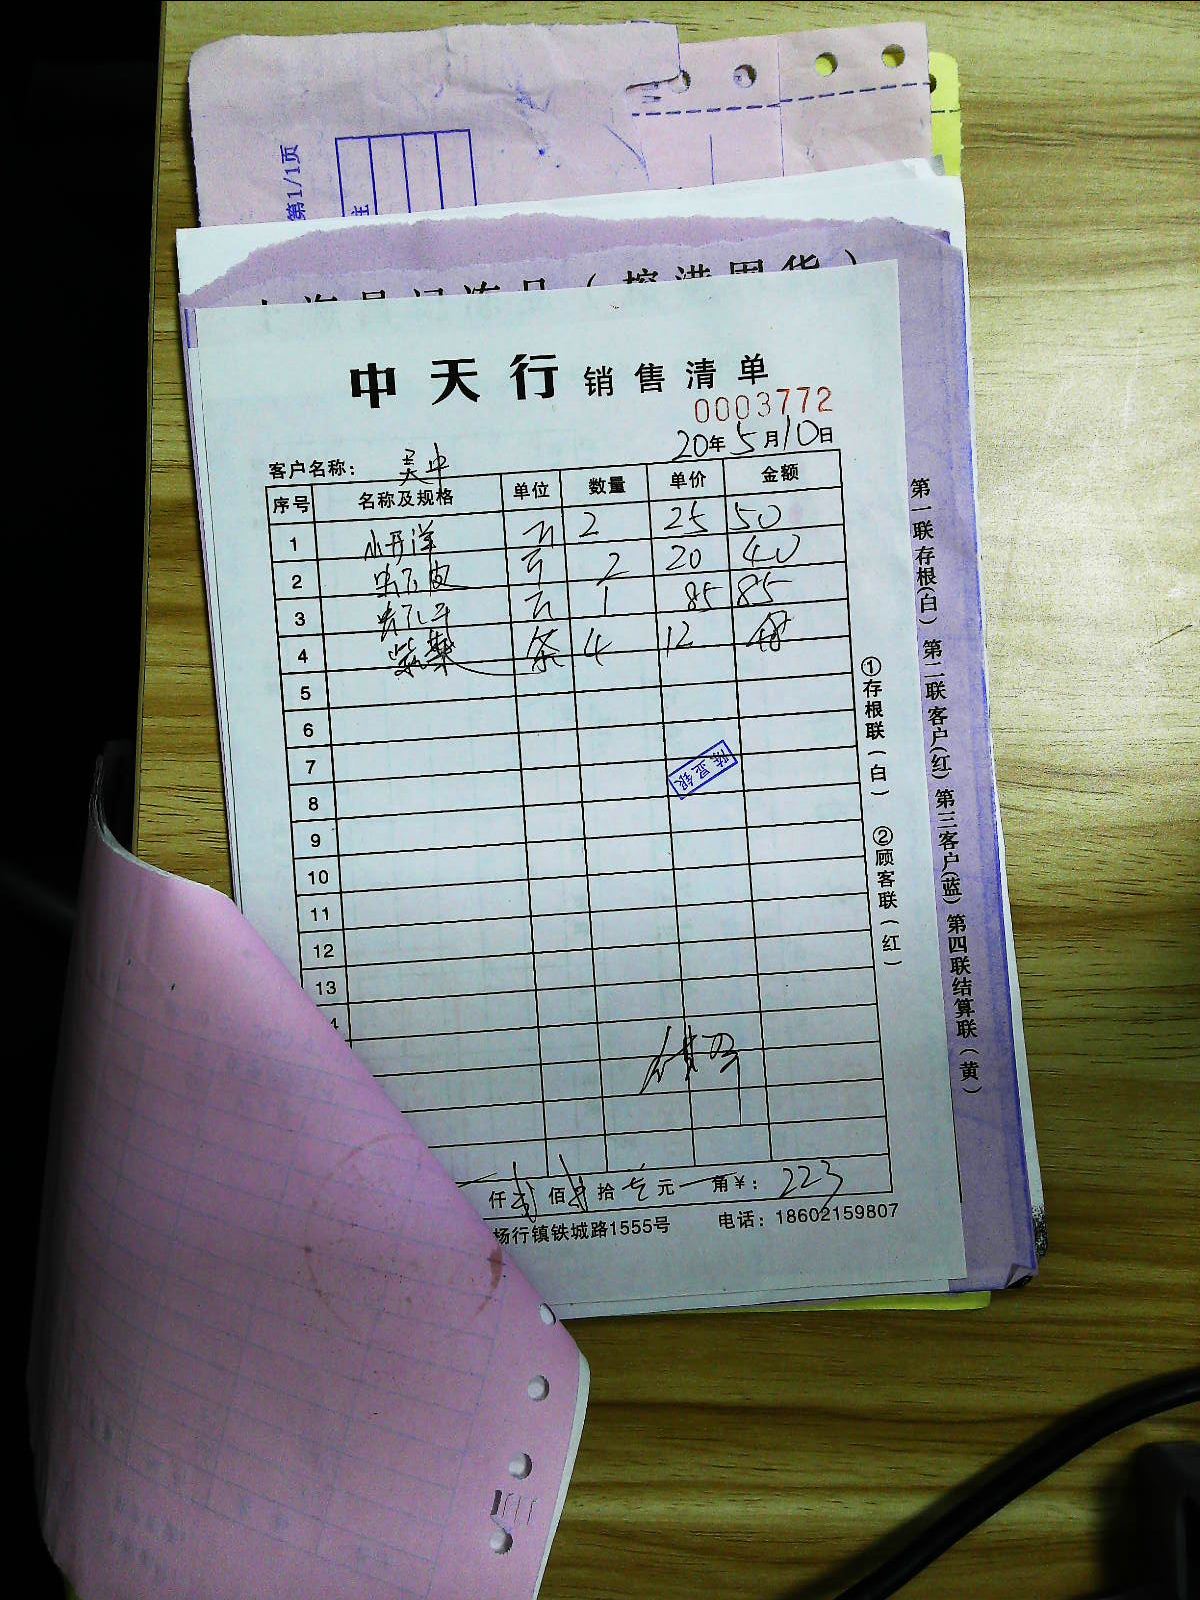 第1/1页
注
中天行 销售清单
0003772
20年5月10日
客户名称： 吴中
序号 名称及规格 单位 数量 单价 金额
1 小开洋 斤 2 25 50
2 虾皮 斤 2 20 40
3 斤 1 85 85
4 紫菜 条 4 12 48
5
6
7
8
9
10
11
12
13
仟 佰 拾 元 角¥： 223
杨行镇铁城路1555号 电话：18602159807
①存根联（白） ②顾客联（红）
第一联存根(白) 第二联客户(红) 第三客户(蓝) 第四联结算联（黄）